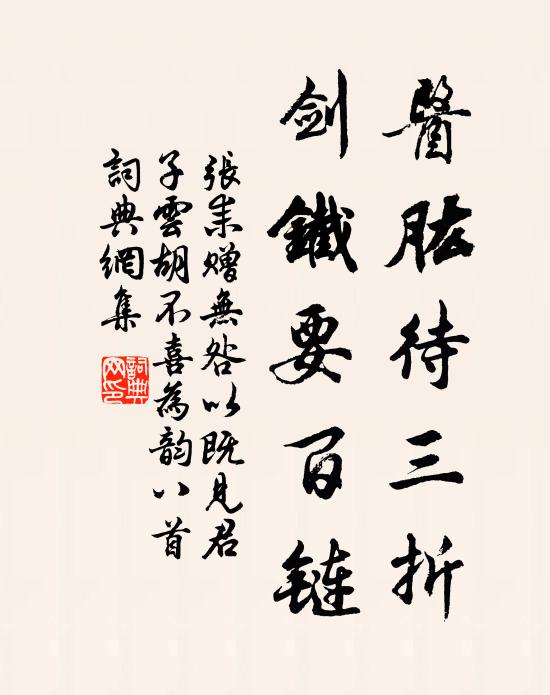 醫肱待三折
劍鐵要百鏈
張耒贈無咎以既見君
子雲胡不喜為韵八首
詞典網集
詞典
网印